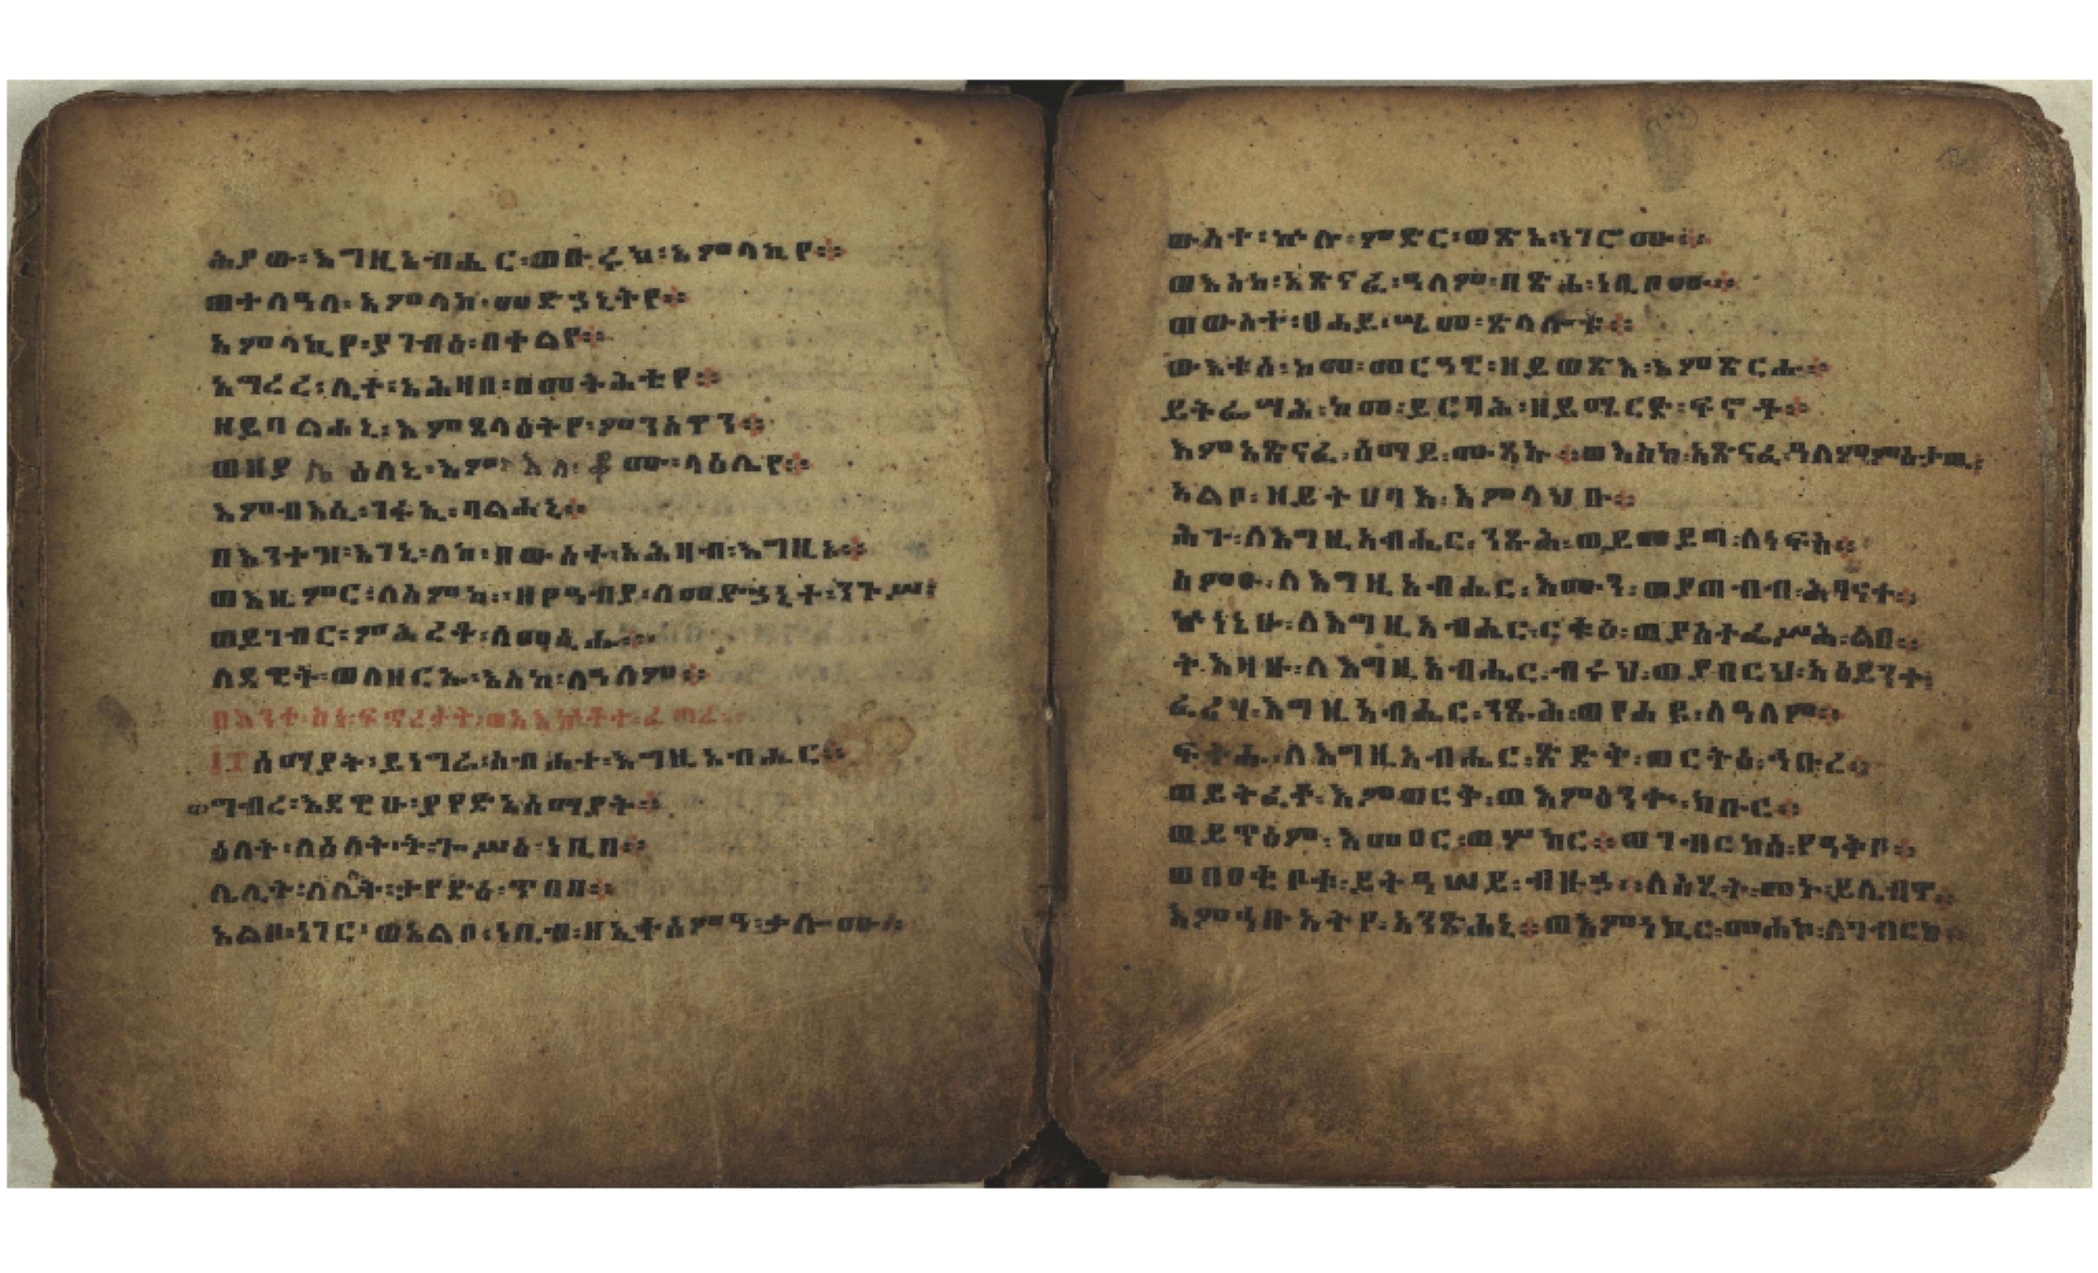 ሕያው፡እግዚአብሔር፡ወቡሩክ፡አምላኪየ።
ወተለዓለ፡አምላክ፡መድኃኒትየ።
አምላኪየ፡ያገብዕ፡በቀልየ።
አግረረ፡ሊተ፡አሕዛበ፡በመትሕቴየ።
ዘይባልሐኒ፡እምጸላዕትየ፡ምንስዋን።
ወዘያ ዕለኒ፡እም ቆሙ፡ላዕሌየ።
እምብእሲ፡ገፋኢ፡ባልሐኒ።
በእንተዝ፡እገኒ፡ለከ፡በውስተ፡አሕዛብ፡እግዚኦ።
ወእዜምር፡ለስምከ፡ዘየዓብያ፡ለመድኃኒተ፡ንጉሥ፡
ወይገብር፡ምሕረቶ፡ለመሲሑ።
ለዳዊት፡ወለዘርኡ፡እስከ፡ለዓለም።
በእንተ፡ስነ፡ፍጥረታት፡ወአእኵቶተ፡ፈጣሪ።
፲፰ሰማያት፡ይነግራ፡ስብሐተ፡እግዚአብሔር።
ወግብረ፡እደዊሁ፡ያየድዓ፡ሰማያት።
ዕለት፡ለዕለት፡ትጐሥዕ፡ነቢበ።
ሌሊት፡ለሌሊት፡ታየድዕ፡ጥበበ።
አልቦ፡ነገር፡ወአልቦ፡ነቢብ፡ዘኢተሰምዓ፡ቃሎሙ።
ውስተ፡ኵሉ፡ምድር፡ወጽአ፡ነገሮሙ።
ወእስከ፡አጽናፈ፡ዓለም፡በጽሐ፡ነቢቦሙ።
ወውስተ፡ፀሐይ፡ሤመ፡ጽላሎቱ።
ውእቱሰ፡ከመ፡መርዓዊ፡ዘይወጽእ፡እምጽርሑ።
ይትፌሣሕ፡ከመ፡ይርባሕ፡ዘይሜርድ፡ፍኖቶ።
እምአጽናፈ፡ሰማይ፡ሙጻኡ።ወእስከ፡አጽናፈ፡ዓለም፡ምዕታዉ፡
አልቦ፡ዘይትሀባእ፡እምላህቡ።
ሕጉ፡ለእግዚአብሔር፡ንጹሕ፡ወይመይጣ፡ለነፍስ።
ስምዑ፡ለእግዚአብሔር፡እሙን፡ወያጠብብ፡ሕፃናተ።
ኵነኔሁ፡ለእግዚአብሔር፡ርቱዕ፡ወያስተፌሥሕ፡ልበ።
ትእዛዙ፡ለእግዚአብሔር፡ብሩህ፡ወያበርህ፡አዕይንተ፡
ፈሪሃ፡እግዚአብሔር፡ንጹሕ፡ወየሐዩ፡ለዓለም።
ፍትሑ፡ለእግዚአብሔር፡ጽድቅ፡ወርትዕ፡ኅቡረ።
ወይትፈቶ፡እምወርቅ፡ወእምዕንቍ፡ክቡር።
ወይጥዕም፡እመዐር፡ወሦከር።ወገብርከሰ፡የዓቅቦ።
ወበዐቂቦቱ፡ይትዓሠይ፡ብዙኃ።ለስሂት፡መኑ፡ይሌብዋ።
እምኅቡአትየ፡አንጽሐኒ።ወእምነኪር፡መሐክ፡ለገብርከ።